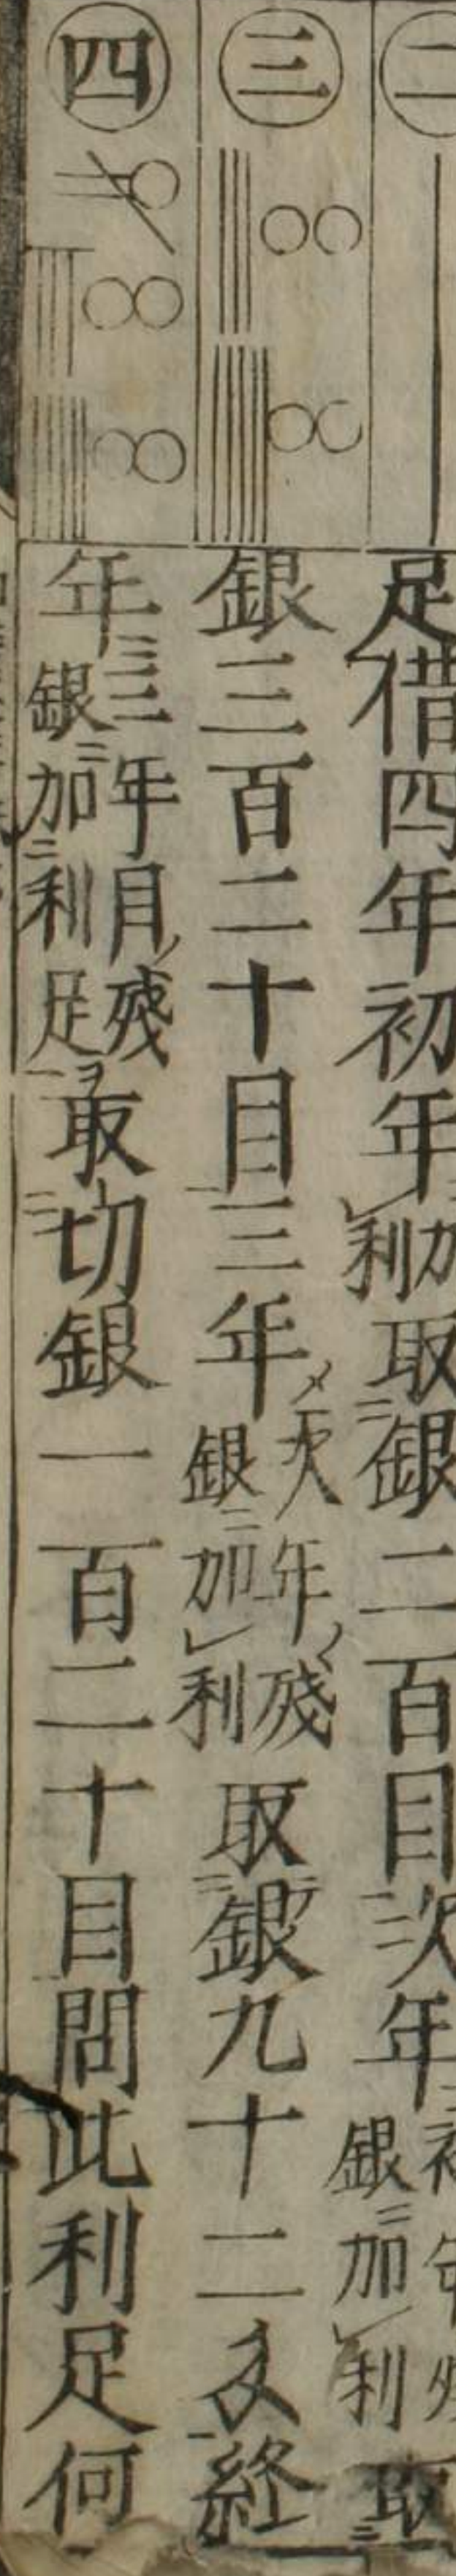 二
足借四年初年加利取銀二百目次年銀加利取
三
銀三百二十目三年次年残銀ニ加利取銀九十二匁終
四
年三年目ノ残銀ニ加利足ヲ取切銀一百二十目問此利足何